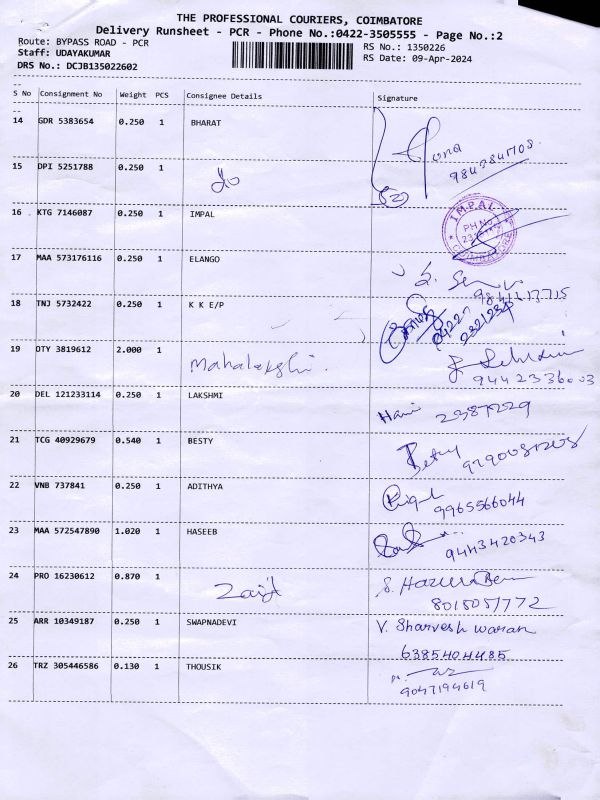 THE PROFESSIONAL COURIERS, COIMBATORE
Delivery Runsheet - PCR - Phone No.:0422-3505555 - Page No.:2
Route: BYPASS ROAD - PCR
RS No.: 1350226
Staff: UDAYAKUMAR
RS Date: 09-Apr-2024
DRS No.: DCJB135022602
S No Consignment No Weight PCS Consignee Details Signature
14 GDR 5383654 0.250 1 BHARAT
15 DPI 5251788 0.250 1 do
16 KTG 7146087 0.250 1 IMPAL
IMPAL
PH No
17 MAA 573176116 0.250 1 ELANGO
18 TNJ 5732422 0.250 1 K K E/P
0422
19 OTY 3819612 2.000 1
9442336003
20 DEL 121233114 0.250 1 LAKSHMI
2387229
21 TCG 40929679 0.540 1 BESTY Besty
22 VNB 737841 0.250 1 ADITHYA
9965566044
23 MAA 572547890 1.020 1 HASEEB
9443420343
24 PRO 16230612 0.870 1 Zaid
8015057772
25 ARR 10349187 0.250 1 SWAPNADEVI V. Sharvesh waran
6385404485
26 TRZ 305446586 0.130 1 THOUSIK
9047194619